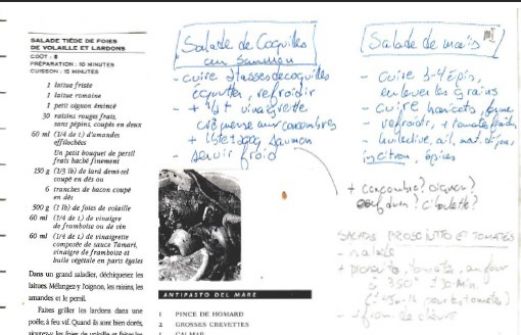 SALADE TIÈDE DE FOIES
DE VOLAILLE ET LARDONS
COÛT : $
PRÉPARATION : 10 MINUTES
CUISSON : 10 MINUTES
1 laitue frisée
1 laitue romaine
1 petit oignon émincé
30 raisins rouges frais,
sans pépins, coupés en deux
60 ml (1/4 de t.) d'amandes
effilochées
Un petit bouquet de persil
frais haché finement
150 g (1/3 lb) de lard demi-sel
coupé en dés ou
6 tranches de bacon coupé
en dés
500 g (1 lb) de foies de volaille
60 ml (1/4 de t.) de vinaigre
de framboise ou de vin
60 ml (1/4 de t.) de vinaigrette
composée de sauce Tamari,
vinaigre de framboise et
huile végétale en parts égales
Dans un grand saladier, déchiquetez les
laitues. Mélangez-y l'oignon, les raisins, les
amandes et le persil.
Faites griller les lardons dans une
poêle, à feu vif. Quand ils sont bien dorés,
ajoutez-y les foies de volaille et faites-les
ANTIPASTO DEL MARE
1 PINCE DE HOMARD
2 GROSSES CREVETTES
1 CALMAR
Salade de Coquilles
au saumon
- cuire 2 tasses de coquilles
égoutter, refroidir
- + vinaigrette
crémeuse aux concombres
+ saumon
- servir froid
Salade de maïs
- cuire 3-4 épis,
enlever les grains
- cuire haricots
- refroidir, + tomates
citron, épices
+ concombre? oignon?
oeuf durs? ciboulette?
SALADE PROSCIUTTO ET TOMATES
- salade
+ prosciuto, tomates, au four
à 350°